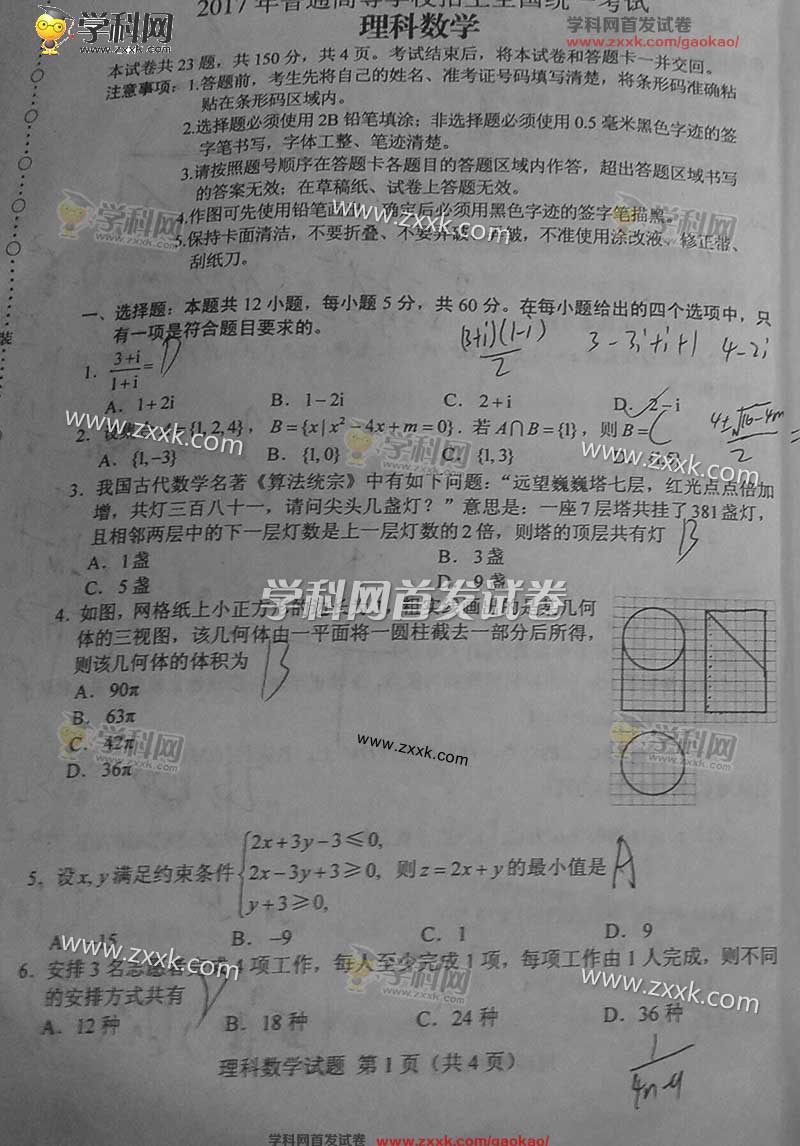 2017年普通高等学校招生全国统一考试
www.zxxk.com/gaokao/
理科数学
学科网
www.zxxk.com
本试卷共 23 题，共 150 分，共 4 页。考试结束后，将本试卷和答题卡一并交回。
注意事项：1.答题前，考生先将自己的姓名、准考证号码填写清楚，将条形码准确粘
贴在条形码区域内。
2.选择题必须使用 2B 铅笔填涂；非选择题必须使用 0.5 毫米黑色字迹的签
字笔书写，字体工整、笔迹清楚。
3.请按照题号顺序在答题卡各题目的答题区域内作答，超出答题区域书写
的答案无效；在草稿纸、试卷上答题无效。
4.作图可先使用铅笔画出，确定后必须用黑色字迹的签字笔描黑。
5.保持卡面清洁，不要折叠、不要弄破、弄皱，不准使用涂改液、修正带、
刮纸刀。
学科网
www.zxxk.com
装
一、选择题：本题共 12 小题，每小题 5 分，共 60 分。在每小题给出的四个选项中，只
有一项是符合题目要求的。
(3+i)(1-i)/2 3-3i+i+1 4-2i
1. (3+i)/(1+i)= D
A. 1+2i B. 1-2i C. 2+i D. 2-i
2. 设集合A={1,2,4}，B={x|x²-4x+m=0}. 若A∩B={1}，则B= C
4±√16-4m/2 =
A. {1,-3} B. {1,0} C. {1,3} D. {1,5}
3. 我国古代数学名著《算法统宗》中有如下问题：“远望巍巍塔七层，红光点点倍加
增，共灯三百八十一，请问尖头几盏灯？”意思是：一座 7 层塔共挂了 381 盏灯，
且相邻两层中的下一层灯数是上一层灯数的 2 倍，则塔的顶层共有灯 B
A. 1 盏 B. 3 盏
C. 5 盏 D. 9 盏
学科网首发试卷
www.zxxk.com
4. 如图，网格纸上小正方形的边长为1，粗实线画出的是某几何
体的三视图，该几何体由一平面将一圆柱截去一部分后所得，
则该几何体的体积为 B
A. 90π
B. 63π
C. 42π
D. 36π
学科网
www.zxxk.com
5. 设x,y满足约束条件 {2x+3y-3≤0, 2x-3y+3≥0, y+3≥0, 则z=2x+y的最小值是 A
A. -15 B. -9 C. 1 D. 9
6. 安排 3 名志愿者完成 4 项工作，每人至少完成 1 项，每项工作由 1 人完成，则不同
的安排方式共有 D
A. 12 种 B. 18 种 C. 24 种 D. 36 种
www.zxxk.com
理科数学试题 第 1 页（共 4 页）
学科网首发试卷 www.zxxk.com/gaokao/